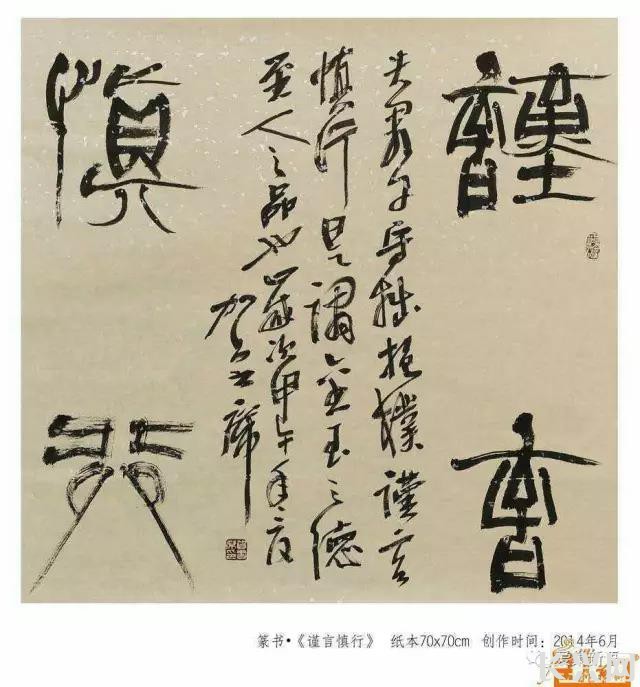 謹言
夫君子守拙抱樸謹言
慎行是謂金玉之德
至人之品也歲次甲午年夏
慎行
篆书•《谨言慎行》 纸本70x70cm 创作时间：2014年6月